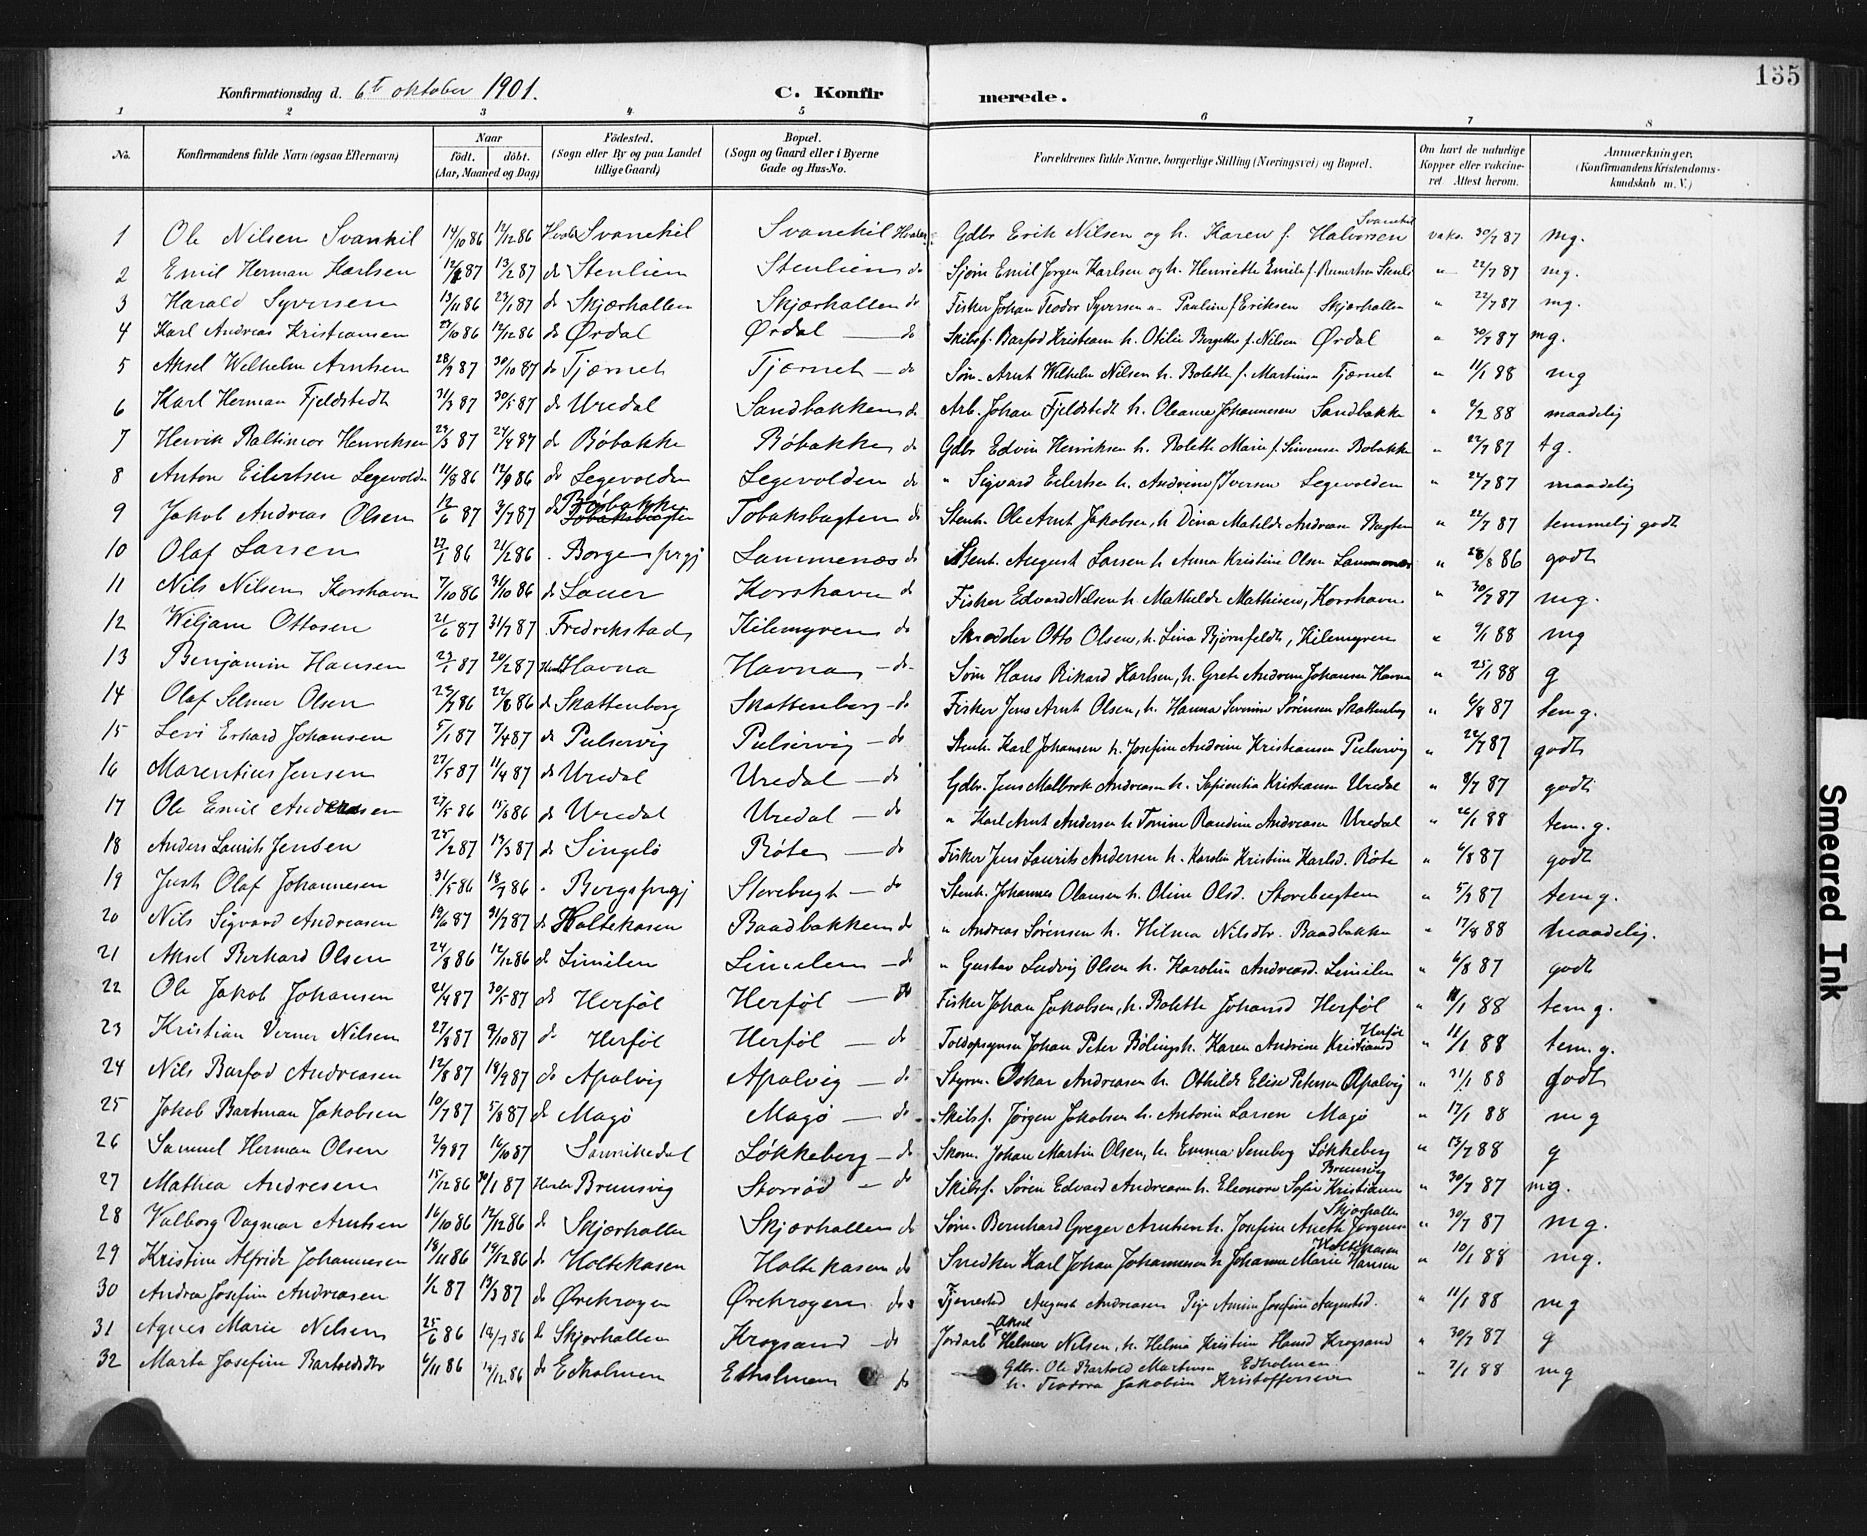 135
Konfirmationsdag d. 6te oktober 1901. C. Konfirmerede.
1 2 3 4 5 6 7 8
No. Konfirmandens fulde Navn (ogsaa Efternavn) Naar født. døbt. (Aar, Maaned og Dag) Fødested. (Sogn eller By og paa Landet tillige Gaard) Bopæl. (Sogn og Gaard eller i Byerne Gade og Hus-No. Forældrenes fulde Navne, borgerlige Stilling (Næringsvei) og Bopæl. Om havt de naturlige Kopper eller vakcineret. Attest herom. Anmærkninger. (Konfirmandens Kristendomskundskab m. V.)
1 Ole Nilsen Svanekil 14/10 86 12/12 86 Hvaler Svanekil Svanekil Hvaler Gdbr Erik Nilsen og h. Karen f. Halvorsen Svanekil vakc. 30/7 87 mg.
2 Emil Herman Karlsen 13/2 87 do Stenlien Stenlien do Sjøm Emil Jørgen Karlsen og h. Henriette Emilie f. " 22/7 87 mg.
3 Harald Syversen 13/11 86 23/1 87 do Skjærhallen Skjærhallen do Fisker Johan Teodor Syversen " Pauline f. Eriksen Skjærhallen " 22/7 87 mg.
4 Karl Andreas Kristiansen 12/12 86 do Ørdal Ørdal do Skibsf. Barfod Kristiansen h. Otilie Bergette f. Nilsen Ørdal " 30/7 87 mg.
5 Aksel Wilhelm Arntsen 28/9 87 30/10 87 do Tjærnet Tjærnet - do Søm. Arnt Wilhelm Nilsen h. Bolette f. Martinsen Tjærnet " 11/1 88 mg
6 Karl Herman Fjeldstedt 31/3 87 30/5 87 do Uredal Sandbakken do Arb. Johan Fjeldstedt h. Oleana Johannesen Sandbakke " 9/2 88 maadelig
7 Henrik Baltinior Henriksen 23/3 87 24/4 87 do Bøbakke Bøbakke do Gdbr Edvin Henriksen h. Bolette Marie f. Simensen Bøbakke " 22/7 87 tg.
8 Anton Eilertsen Legevolden 11/8 86 12/9 86 do Legevolden Legevolden do " Sigvard Eilertsen h. Andrine f. Iversen Legevolden " 24/7 87 maadelig
9 Jakob Andreas Olsen 12/6 87 3/7 87 do Bøbakke Tobaksbugten Tobaksbugten do Stenh. Ole Arnt Jakobsen, h. Dina Matilde Andreasen Bugten " 22/7 87 temmelig godt
10 Olaf Larsen 21/2 86 . Borge prgj Lammenæs do Stenh. August Larsen h. Anna Kristine Olsen Lammenæs " 28/8 86 godt
11 Nils Nilsen Korshavn 7/10 86 31/10 86 do Lauer Korshavn do Fisker Edvard Nilsen h. Mathilde Mathisen, Korshavn " 30/7 87 mg.
12 Wiljam Ottosen 21/6 87 31/7 87 . Fredrikstad Kilemyren do Skrædder Otto Olsen, h. Lina Bjørnfeldt, Kilemyren " 9/1 88 mg
13 Benjamin Hansen 20/2 87 Havna Havna - do. Søm Hans Rikard Karlsen, h. Grete Andrine Johansen Havna " 25/1 88 g
14 Olaf Selmer Olsen 22/8 86 do Skattenborg Skattenborg - do Fisker Jens Arnt Olsen, h. Hanna Severine Sørensen Skattenborg " 6/8 87 tem g.
15 Levi Erhard Johansen 5/1 87 7/4 87 do Pulservig Pulservig - do Stenh. Karl Johansen h. Josefine Andrine Kristiansen Pulservig " 22/7 87 godt
16 Marentius Jensen 11/4 87 do Uredal Uredal - do Gdbr. Jens Malbrok Andreasen h. Sapientia Kristiansen Uredal " 8/7 87 godt
17 Ole Emil Andersen 27/5 86 15/8 86 do Uredal Uredal - do " Karl Arnt Andersen h Tonine Randine Andreasen Uredal " 26/1 88 tem. g.
18 Anders Laurits Jensen 25/2 87 13/3 87 do Singelø Røte - do Fisker Jens Laurits Andersen h. Karolin Kristine Karlsd. Røte " 6/8 87 godt
19 Just Olaf Johannesen 31/5 86 18/7 86 . Borge prgj Storebugt - do Stenh. Johannes Olausen h. Oline Olsd. Storebugten " 5/3 87 tem g.
20 Nils Sigvard Andreasen 19/6 87 31/7 87 do Holtekasen Baadbakken do " Andreas Sørensen h. Hilma Nilsdtr. Baadbakke " 17/8 88 maadelig.
21 Aksel Berhard Olsen 24/8 86 12/12 86 do Limilen Limilen - do " Gustav Ludvig Olsen h. Karoline Andreasd. Limilen " 6/8 87 godt
22 Ole Jakob Johansen 21/4 87 30/5 87 do Herføl Herføl - do Fisker Johan Jakobsen, h. Bolette Johansd Herføl " 11/1 88 tem g.
23 Kristian Verner Nilsen 27/8 87 9/10 87 do Herføl Herføl - do Toldopsynsm Johan Peter Bøling h. Karen Andrine Kristiansd Herføl " 11/1 88 tem. g.
24 Nils Barfod Andreasen 12/8 87 18/9 87 do Apalvig Apalvig - do Styrm. Oskar Andreasen h. Othilde Elise Petersen Apalvig " 21/1 88 godt
25 Jakob Bartman Jakobsen 10/7 87 5/8 87 do Magø Magø - do Skibsf. Jørgen Jakobsen h. Antonie Larsen Magø " 17/1 88 mg
26 Samuel Herman Olsen 2/9 87 16/10 87 Sannikedal Løkkeberg - do Skom. Johan Martin Olsen, h. Emma Løkkeberg " 13/7 88 g
27 Mathea Andresen 15/12 86 30/1 87 Hvaler Brunsvig Storrød - do Skibsf. Søren Edvard Andreasen h. Eleonore Sofie Kristiansen Brunsvig " 30/7 87 mg.
28 Valborg Dagmar Arntsen 16/10 86 12/12 86 do Skjærhallen Skjærhallen do Søm. Bernhard Greger Arntsen h. Josefine Aneth Jørgensen Skjærhallen " 30/7 87 mg.
29 Kristine Alfride Johannesen 18/11 86 19/12 86 do Holtekasen Holtekasen do Snedker Karl Johan Johannesen h Johanne Marie Hansen Holtekasen " 10/1 88 mg.
30 Andrea Josefine Andreasen 1/2 87 13/3 87 do Ørekrogen Ørekrogen do Tjenested August Andreasen Pige Amine Josefine Augustsd. " 11/1 88 mg
31 Agnes Marie Nilsen 25/6 86 18/7 86 do Skjærhallen Krogsand - do Jordarb Aksel Helmer Nilsen, h. Helma Kristine Hansd Krogsand " 30/7 87 g
32 Marte Josefine Bartholdsdtr 6/11 86 19/12 86 do Edholmen Etholmen do Gdbr. Ole Bartold Martinsen Edholmen h. Teodora Jakobine Kristoffersen " 7/1 88 mg
Smeared Ink